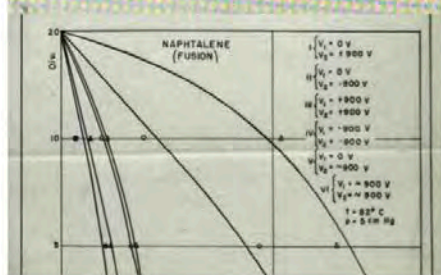 20
Div.
NAPHTALENE
(FUSION)
I { V₁ = 0 V
V₂ = +900 V
II { V₁ = 0 V
V₂ = -900 V
III { V₁ = +900 V
V₂ = +900 V
IV { V₁ = -900 V
V₂ = -900 V
V { V₁ = 0 V
V₂ = ~900 V
VI { V₁ = ~900 V
V₂ = ~900 V
T = 82° C
p = 5 cm Hg
10
5